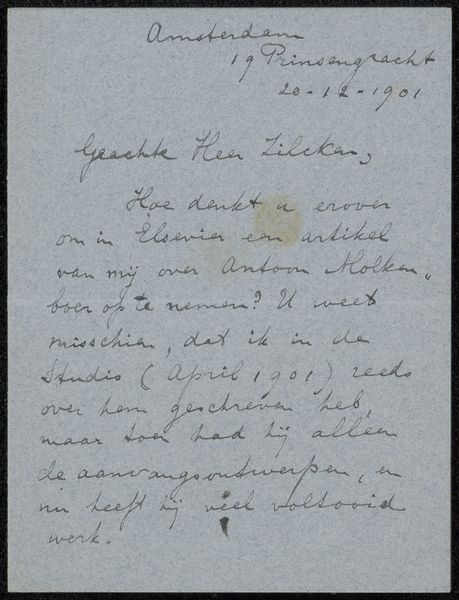 Amsterdam
19 Prinsengracht
20-12-1901
Geachte Heer Zilcken,
Hoe denkt u erover
om in Elsevier een artikel
van mij over Antoon Molken„
boer op te nemen? U weet
misschien, dat ik in de
Studio (April 1901) reeds
over hem geschreven heb,
maar toen had hij alleen
de aanvangsontwerpen, en
nu heeft hij veel voltooid
werk.